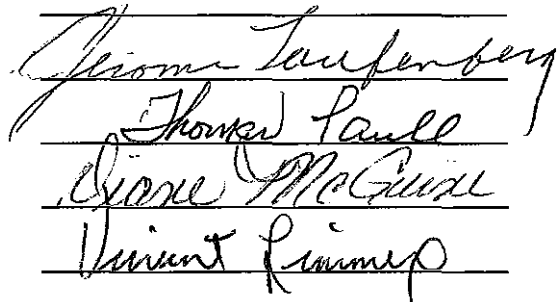 Jerome Laufenberg
Thomas Paull
Diane McGuire
Vincent